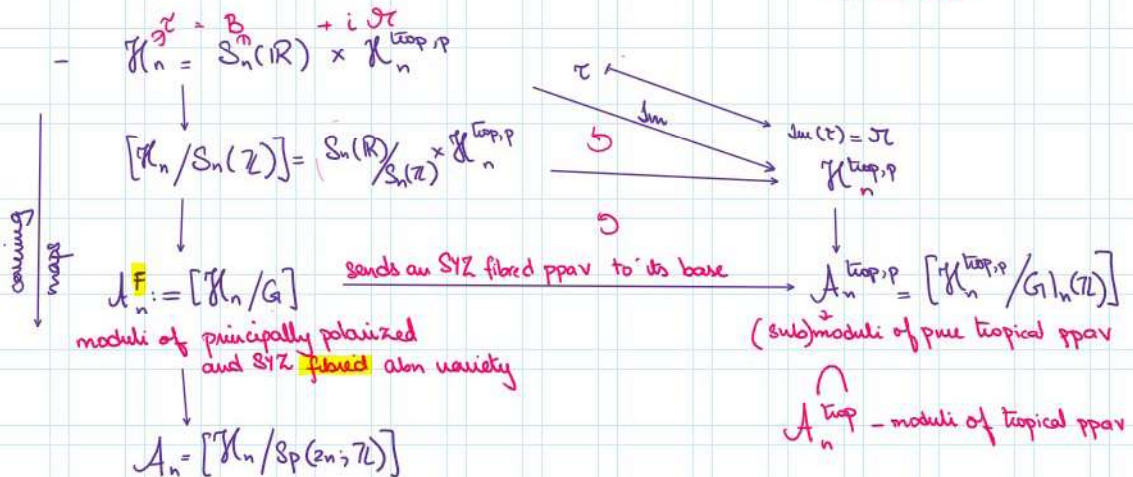 ∋ τ = B + i Ω
- ℋₙ = Sₙ(ℝ) × ℋₙ^{trop,p}
τ ↦ Im Im(τ) = Ω
[ℋₙ/Sₙ(ℤ)] = Sₙ(ℝ)/Sₙ(ℤ) × ℋₙ^{trop,p}
ℋₙ^{trop,p}
covering maps
𝒜ₙ^F := [ℋₙ/G] sends an SYZ fibred ppav to its base 𝒜ₙ^{trop,p} = [ℋₙ^{trop,p}/GLₙ(ℤ)]
moduli of principally polarized
and SYZ fibred abn variety
(sub)moduli of pure tropical ppav
𝒜ₙ^{trop} - moduli of tropical ppav
𝒜ₙ = [ℋₙ/Sp(2n; ℤ)]